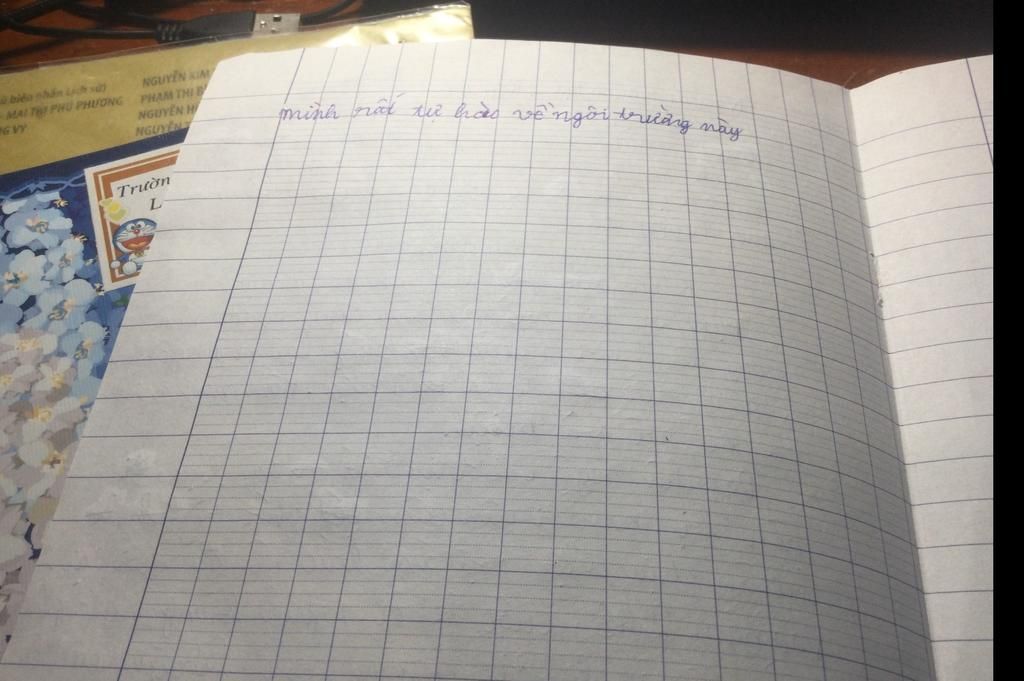 ủ biên phần Lịch sử)
MAI THỊ PHÚ PHƯƠNG
NG VY
NGUYỄN KIM
PHẠM THỊ B
NGUYỄN H
NGUYỄN
Trườn
L
mình rất tự hào về ngôi trường này